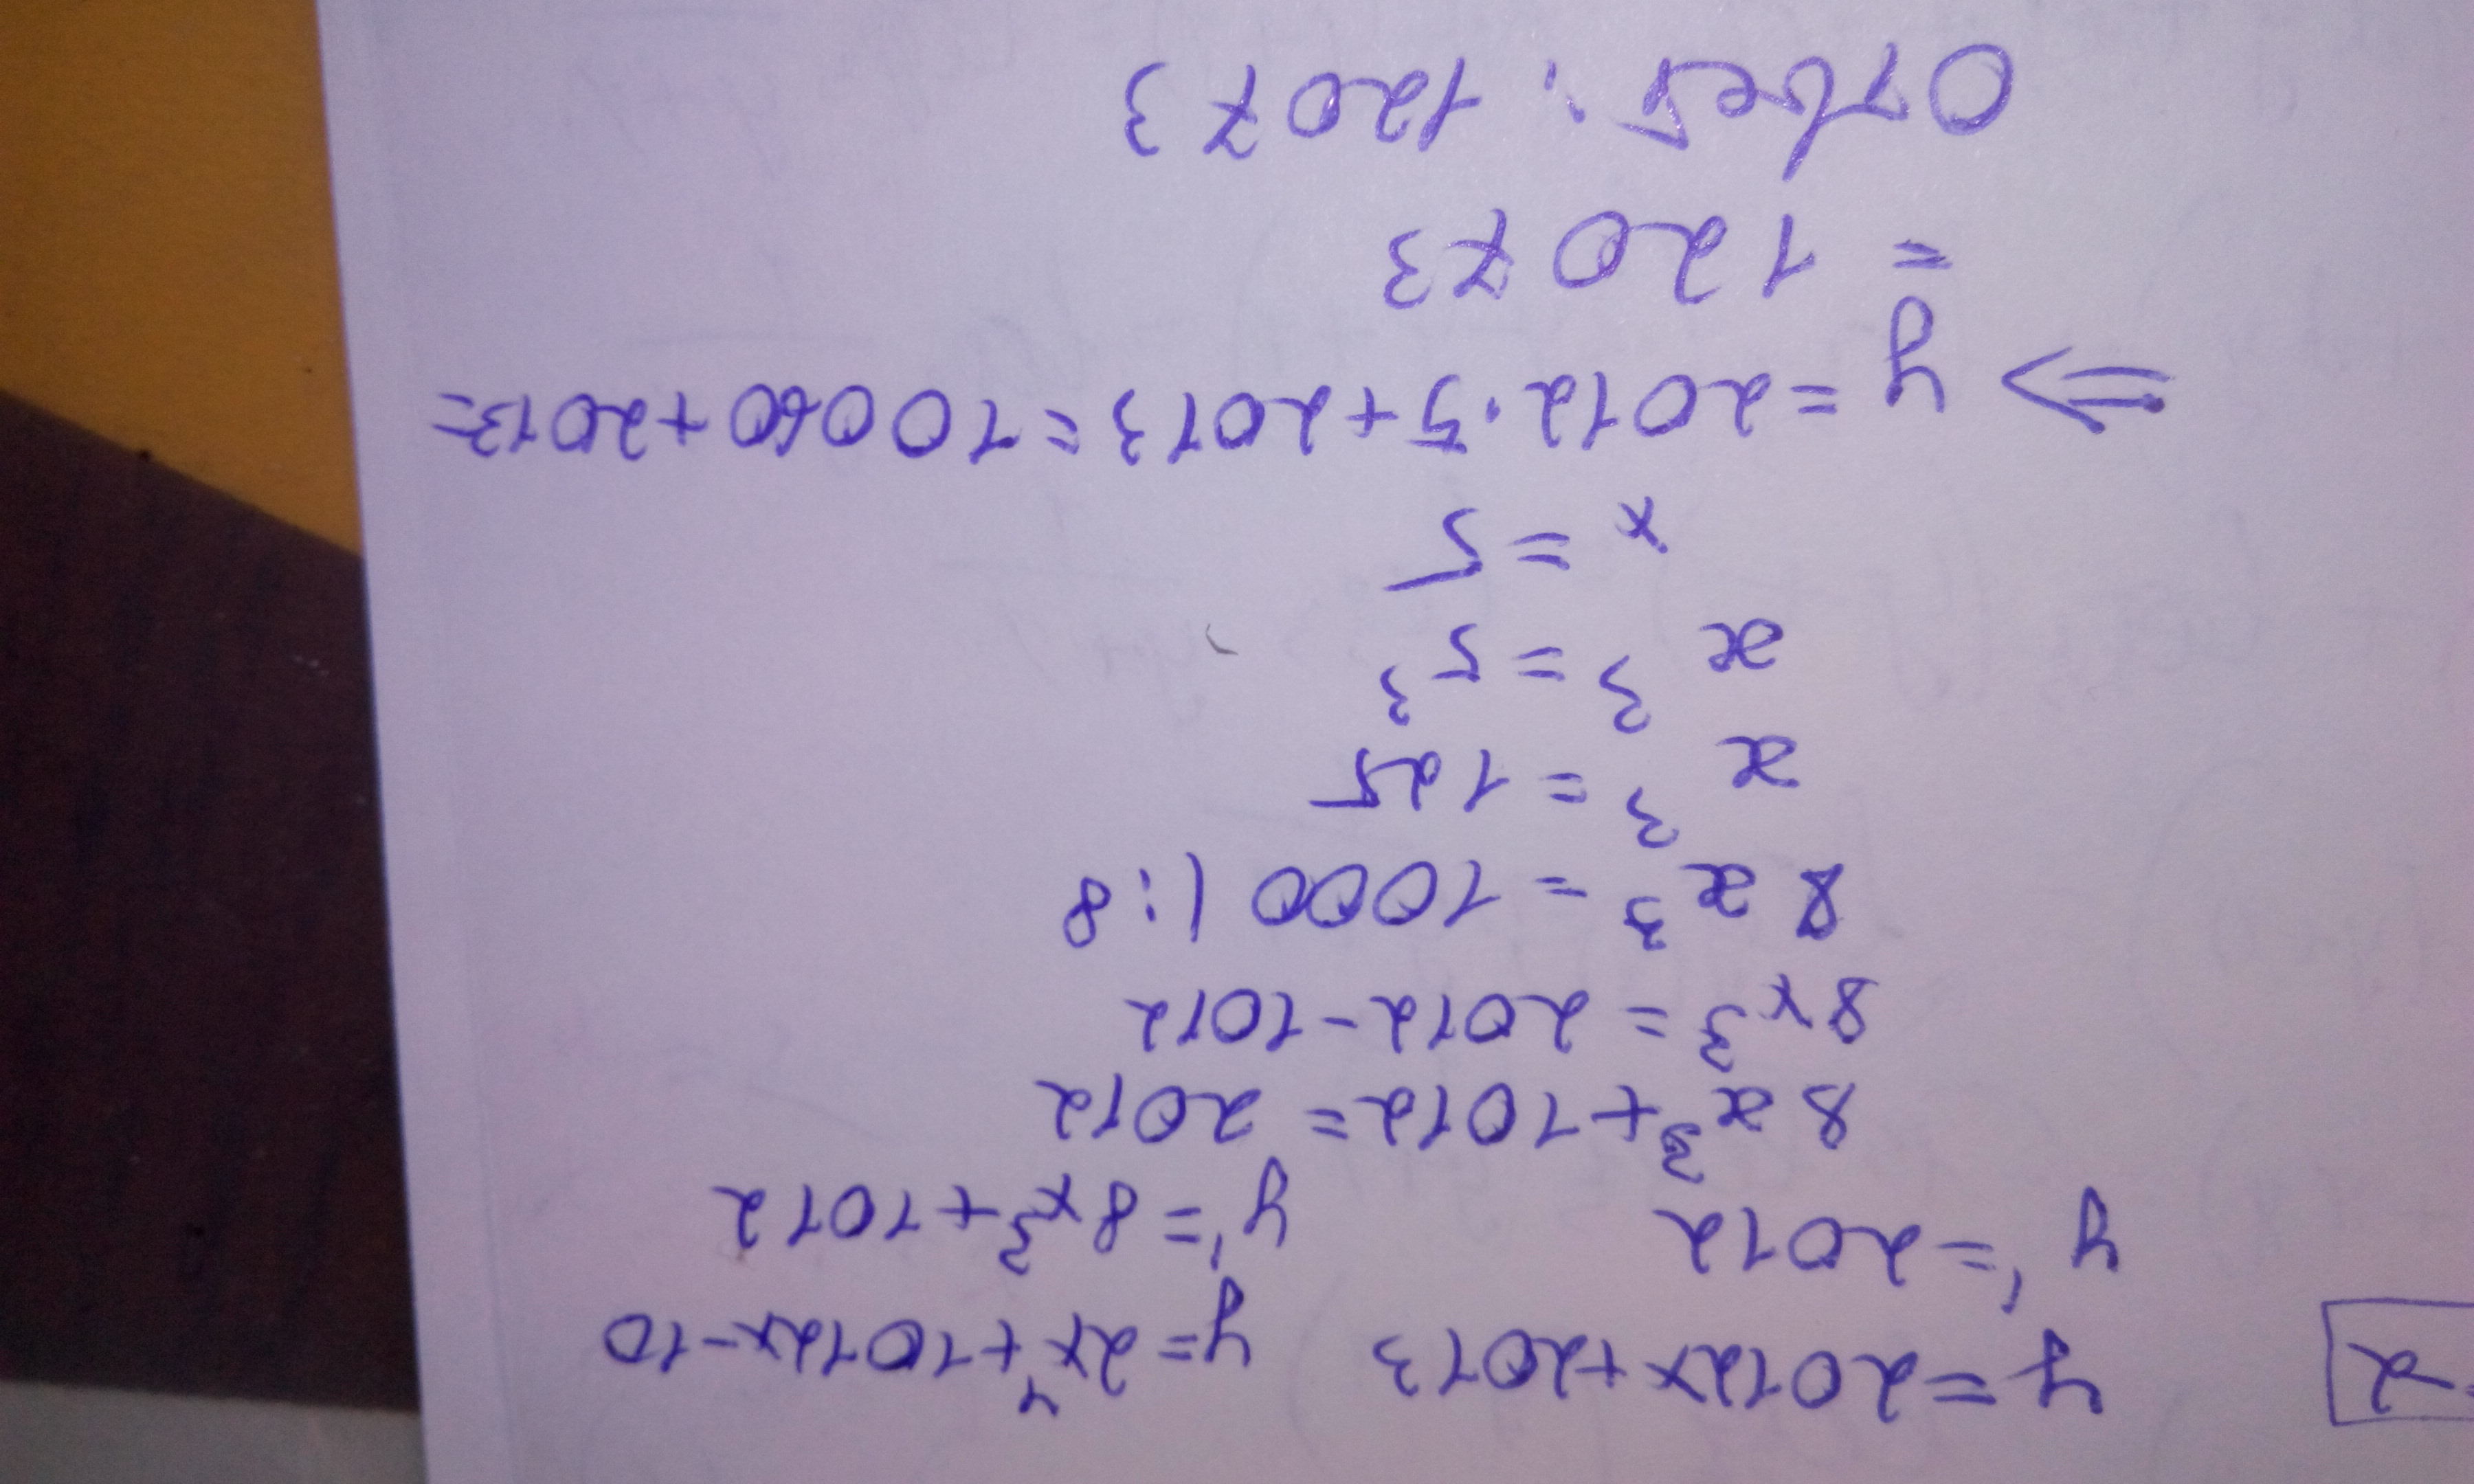 2
y=2012x+2013 y=2x⁴+1012x-10
y'=2012 y'=8x³+1012
8x³+1012=2012
8x³=2012-1012
8x³=1000 |:8
x³=125
x³=5³
x=5
⇒ y=2012·5+2013=10060+2013=
=12073
Ответ: 12073